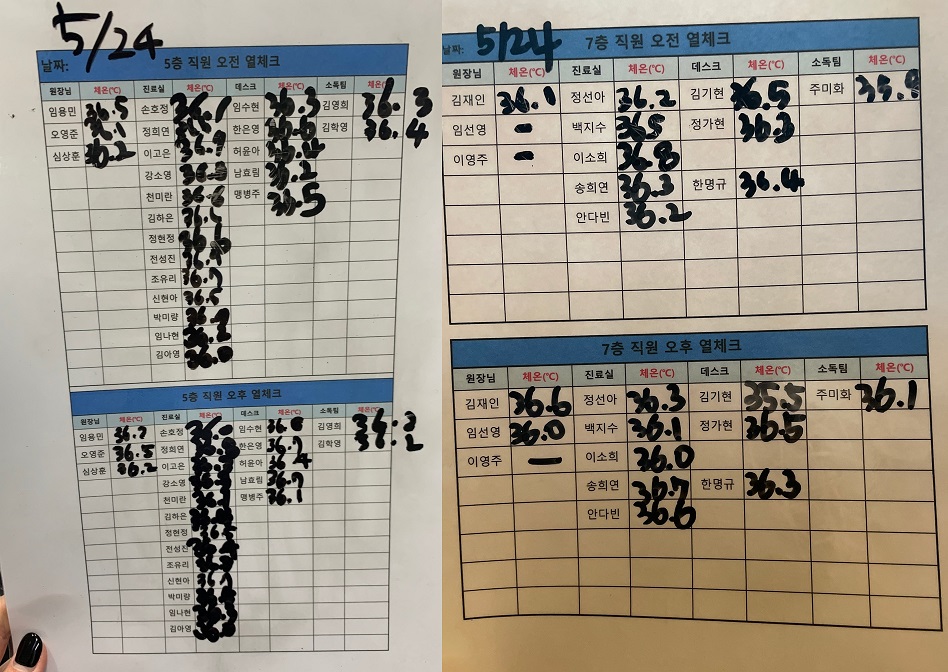 5/24
날짜: 5층 직원 오전 열체크
원장님 체온(℃) 진료실 체온(℃) 데스크 체온(℃) 소독팀 체온(℃)
임용민 36.5 손호정 36.1 임수현 36.3 김영희 36.3
오영준 36.1 정희연 한은영 36.6 김학영 36.4
심상훈 36.2 이고은 36.9 허윤아
강소영 남효림 36.2
천미란 36.6 맹병주 36.5
김하은
정현정
전성진
조유리 36.7
신현아 36.5
박미량
임나현
김아영
5층 직원 오후 열체크
원장님 체온(℃) 진료실 체온(℃) 데스크 체온(℃) 소독팀 체온(℃)
임용민 36.7 손호정 임수현 김영희
오영준 36.5 정희연 한은영 36.7 김학영
심상훈 36.2 이고은 허윤아
강소영 남효림 36.7
천미란 맹병주 36.1
김하은
정현정
전성진
조유리
신현아
박미량
임나현
김아영
날짜: 5/24 7층 직원 오전 열체크
원장님 체온(℃) 진료실 체온(℃) 데스크 체온(℃) 소독팀 체온(℃)
김재인 36.1 정선아 36.2 김기현 36.5 주미화 35.9
임선영 - 백지수 36.5 정가현 36.3
이영주 - 이소희 36.8
송희연 36.3 한명규 36.4
안다빈 36.2
7층 직원 오후 열체크
원장님 체온(℃) 진료실 체온(℃) 데스크 체온(℃) 소독팀 체온(℃)
김재인 36.6 정선아 36.3 김기현 35.5 주미화 36.1
임선영 36.0 백지수 36.1 정가현 36.5
이영주 - 이소희 36.0
송희연 36.7 한명규 36.3
안다빈 36.6